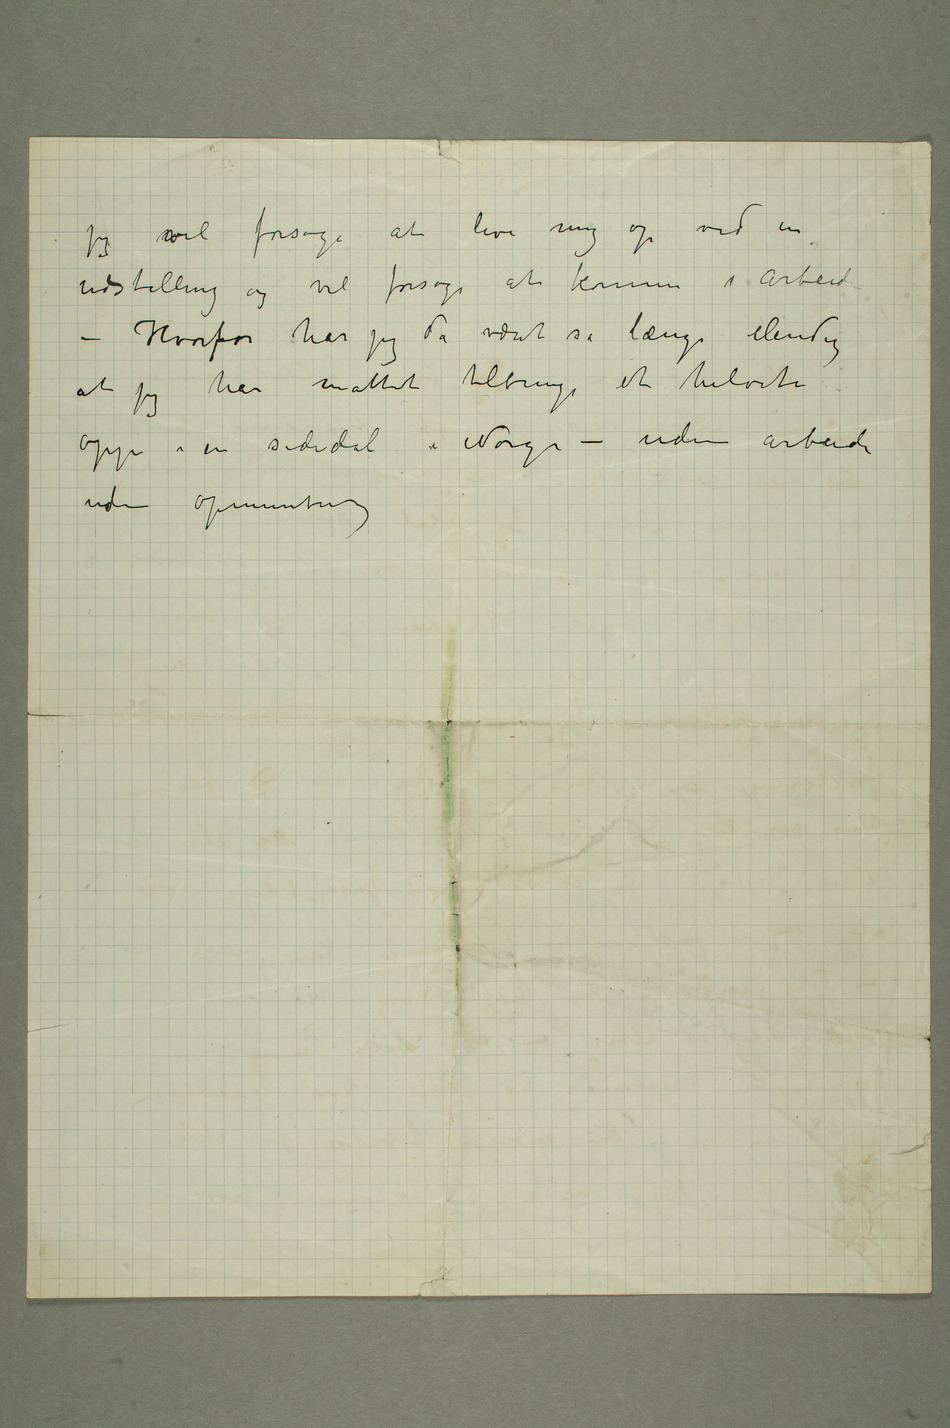 jeg vil forsøge at live mig op ved en
udstilling og vil forsøge at komme i arbeid
– Hvorfor har jeg da vært så længe elendig
at jeg har måttet tilbringe et helvete
oppe i en sidedal i Norge – uden arbeide
uden opmuntring